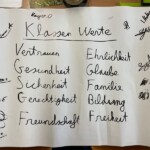 Klassen Werte
Vertrauen Ehrlichkeit
Gesundheit Glaube
Sicherheit Familie
Gerechtigkeit Bildung
Freundschaft Freiheit